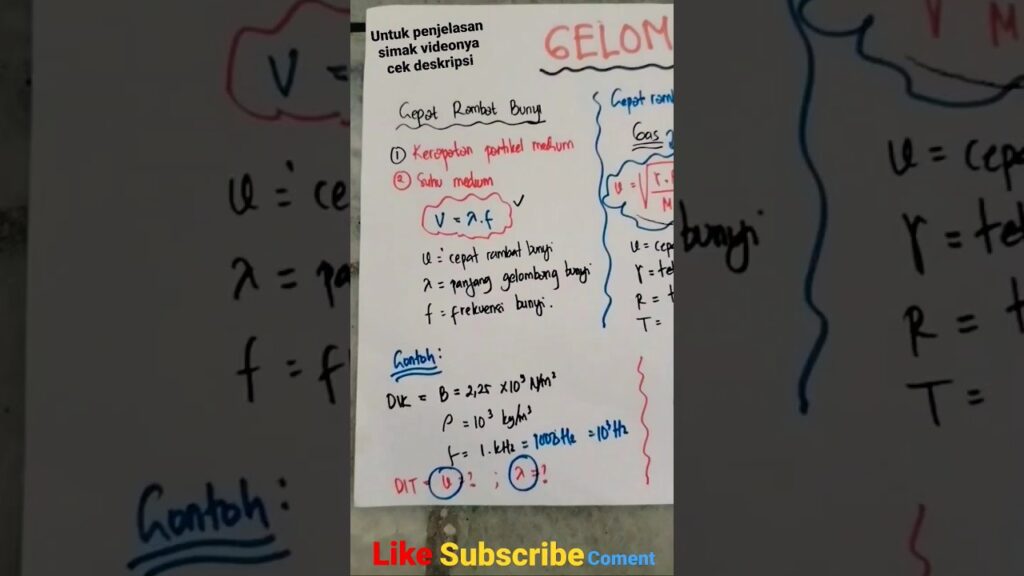 Untuk penjelasan
simak videonya
cek deskripsi
GELOM
Cepat Rambat Bunyi
① Kerapatan partikel medium
② Suhu medium
V = λ.f ✓
υ = cepat rambat bunyi
λ = panjang gelombang bunyi
f = frekuensi bunyi.
Cepat ramb
Gas
υ = √
M
υ = cepa
γ = tet
R = t
T =
Contoh:
DIK = B = 2,25 × 10³ N/m²
ρ = 10³ kg/m³
f = 1 . kHz = 1000 Hz = 10³ Hz
DIT = υ = ? ; λ = ?
Like Subscribe Coment
V =
υ = ce
λ = pa
f = f
Contoh:
M
bunyi
υ = cepa
γ = tet
R = t
T =